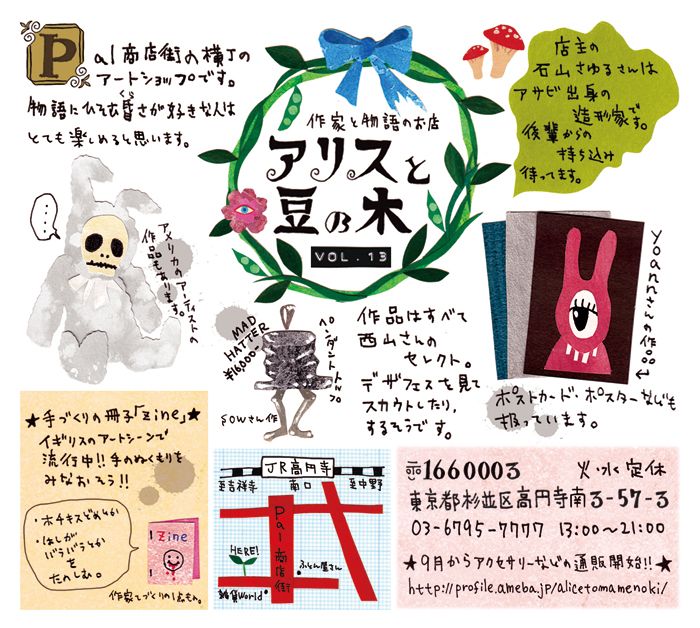 Pal商店街の横丁の
アートショップです。
物語にひそむ昏さが好きな人は
とても楽しめると思います。
作家と物語のお店
アリスと
豆の木
VOL.13
店主の
石山さゆるさんは
アサビ出身の
造形家です。
後輩からの
持ち込み
待ってます。
・・・
アメリカのアーティストの
作品もあります。
MAD
HATTER
¥16000-
ペンダントトップ。
SOWさん作
作品はすべて
西山さんの
セレクト。
デザフェスを見て
スカウトしたり、
するそうです。
yoannさんの作品
ポストカード・ポスターなども
扱っています。
★手づくりの冊子「zine」★
イギリスのアートシーンで
流行中!!手のぬくもりを
みなおそう!!
・ホチキスどめとか
・はしが
バラバラとか
をたのしむ。
zine
作家てづくりの1品もの。
JR高円寺
至吉祥寺
南口
至中野
Pal商店街
HERE!
ふとん屋さん
雑貨World
〒1660003 火・水定休
東京都杉並区高円寺南3-57-3
03-6795-7777 13:00〜21:00
★9月からアクセサリーなどの通販開始!!★
http://profile.ameba.jp/alicetomamenoki/